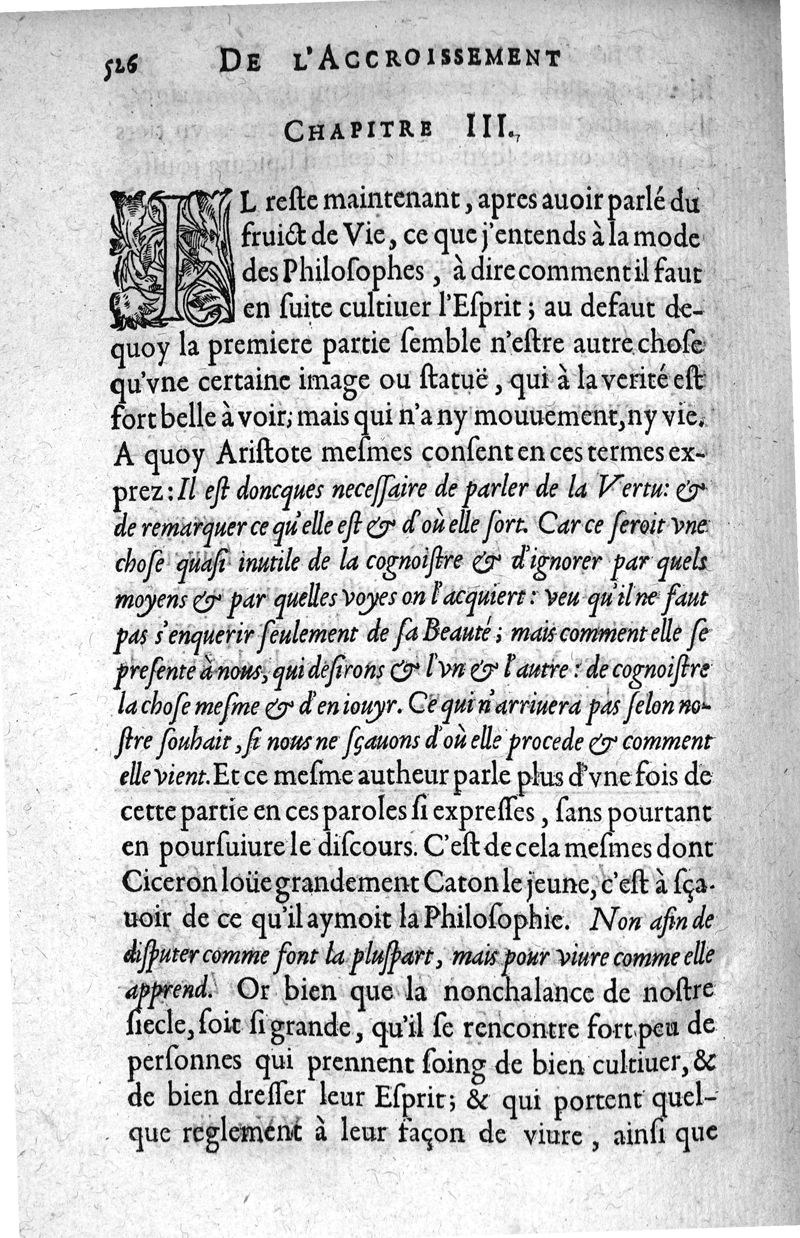 526 DE L'ACCROISSEMENT
CHAPITRE III.
IL reſte maintenant, apres auoir parlé du
fruict de Vie, ce que j'entends à la mode
des Philoſophes, à dire comment il faut
en ſuite cultiuer l'Eſprit; au defaut de-
quoy la premiere partie ſemble n'eſtre autre choſe
qu'vne certaine image ou ſtatuë, qui à la verité eſt
fort belle à voir; mais qui n'a ny mouuement, ny vie.
A quoy Ariſtote meſmes conſent en ces termes ex-
prez: Il eſt doncques neceſſaire de parler de la Vertu: &
de remarquer ce qu'elle eſt & d'où elle ſort. Car ce ſeroit vne
choſe quaſi inutile de la cognoiſtre & d'ignorer par quels
moyens & par quelles voyes on l'acquiert: veu qu'il ne faut
pas s'enquerir ſeulement de ſa Beauté; mais comment elle ſe
preſente à nous, qui deſirons & l'vn & l'autre: de cognoiſtre
la choſe meſme & d'en iouyr. Ce qui n'arriuera pas ſelon no-
ſtre ſouhait, ſi nous ne ſçauons d'où elle procede & comment
elle vient. Et ce meſme autheur parle plus d'vne fois de
cette partie en ces paroles ſi expreſſes, ſans pourtant
en pourſuiure le diſcours. C'eſt de cela meſmes dont
Ciceron loüe grandement Caton le jeune, c'eſt à ſça-
uoir de ce qu'il aymoit la Philoſophie. Non afin de
diſputer comme font la pluſpart, mais pour viure comme elle
apprend. Or bien que la nonchalance de noſtre
ſiecle, ſoit ſi grande, qu'il ſe rencontre fort peu de
perſonnes qui prennent ſoing de bien cultiuer, &
de bien dreſſer leur Eſprit; & qui portent quel-
que reglement à leur façon de viure, ainſi que